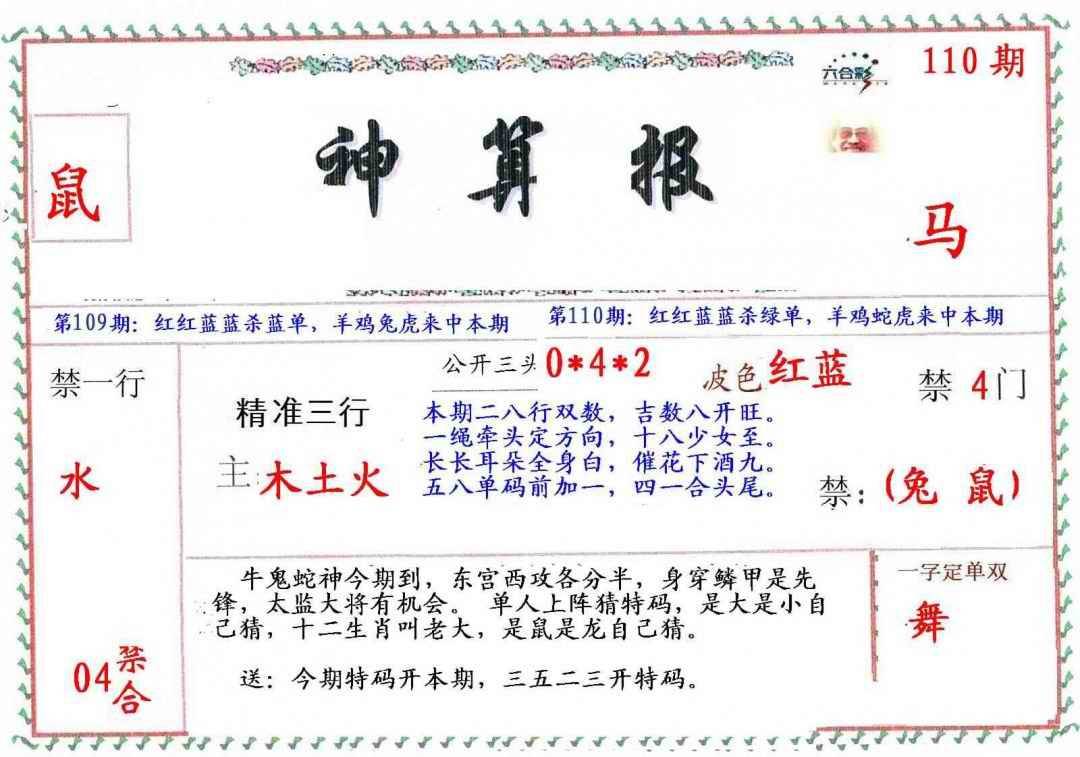 六合彩
110 期
神算报
鼠
马
第109期：红红蓝蓝杀蓝单，羊鸡兔虎来中本期
第110期：红红蓝蓝杀绿单，羊鸡蛇虎来中本期
禁一行
水
04 禁合
精准三行
主:木土火
公开三头 0*4*2
波色 红蓝
本期二八行双数，吉数八开旺。
一绳牵头定方向，十八少女至。
长长耳朵全身白，催花下酒九。
五八单码前加一，四一合头尾。
禁 4门
禁：(兔 鼠)
牛鬼蛇神今期到，东宫西攻各分半，身穿鳞甲是先
锋，太监大将有机会。 单人上阵猜特码，是大是小自
己猜，十二生肖叫老大，是鼠是龙自己猜。
送：今期特码开本期，三五二三开特码。
一字定单双
舞